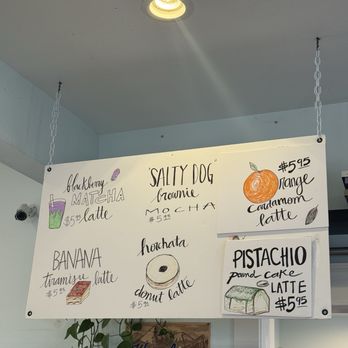 blackberry
MATCHA
$5.95 latte
SALTY DOG
brownie
MOCHA
$5.95
$5.95
orange
Cardamom
latte
BANANA
tiramisu latte
$5.95
horchata
donut latte
$5.95
PISTACHIO
pound cake
LATTE
$5.95